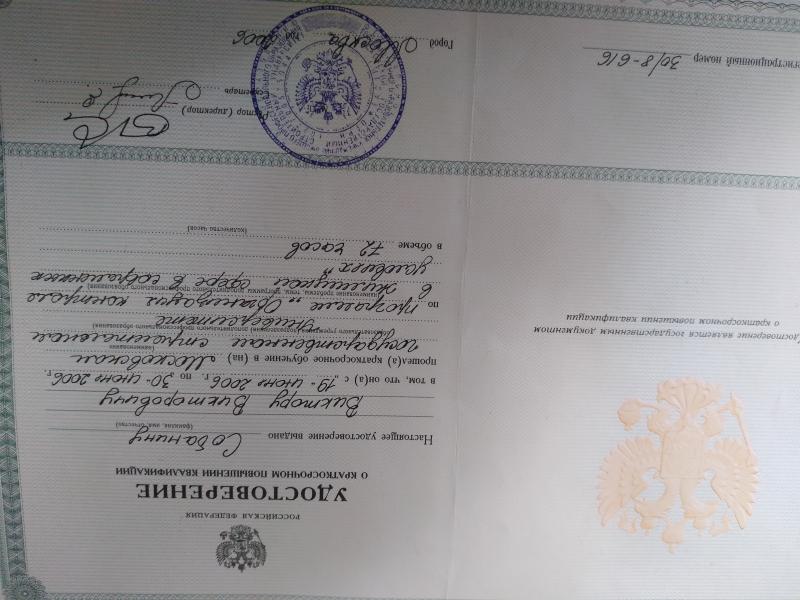 Удостоверение является государственным документом
о краткосрочном повышении квалификации
Регистрационный номер 30/8-616
РОССИЙСКАЯ ФЕДЕРАЦИЯ
УДОСТОВЕРЕНИЕ
О КРАТКОСРОЧНОМ ПОВЫШЕНИИ КВАЛИФИКАЦИИ
Настоящее удостоверение выдано Собанину
(фамилия, имя, отчество)
Виктору Викторовичу
в том, что он(а) с „19" июня 2006 г. по „30" июня 2006 г.
прошел(а) краткосрочное обучение в (на) Московском
(наименование)
государственном строительном
образовательного учреждения (подразделения) дополнительного профессионального образования)
университете
по программе „Организация контроля
(наименование проблемы, темы, программы дополнительного профессионального образования)
в жилищной сфере в современных
условиях"
в объеме 72 часов
(количество часов)
Ректор (директор)
Секретарь
Город Москва год 2006